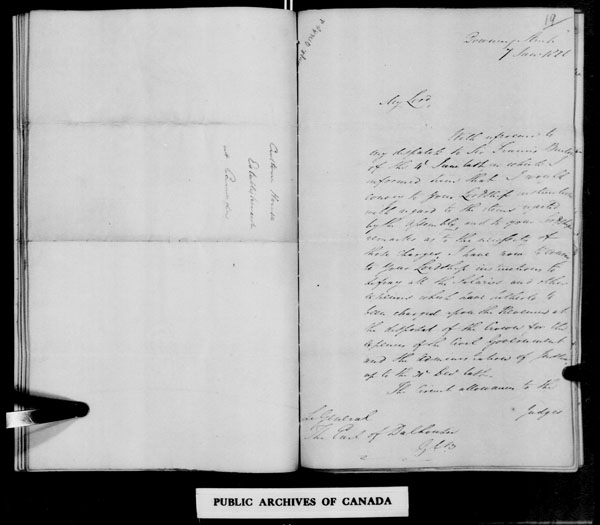 Custom House
Establishment
at Canada
19
Downing Street
7 Jany 1826
My Lord,
With reference to
my dispatch to Sir Francis Burton
of the 4th June last in which I
informed him that I would
convey to Your Lordship instructions
with regard to the items
by the Assembly and to your Lordship's
remarks as to the necessity of
these charges, I have now to convey
to Your Lordship instructions to
defray all the Salaries and other
expences which have hitherto
been charged upon the Revenues at
the disposal of the Crown for the
expences of the Civil Government
and the Administration of Justice
up to the 31st Decr last.
The usual allowances to the
Judges
Lt General
The Earl of Dalhousie
G.C.B
PUBLIC ARCHIVES OF CANADA